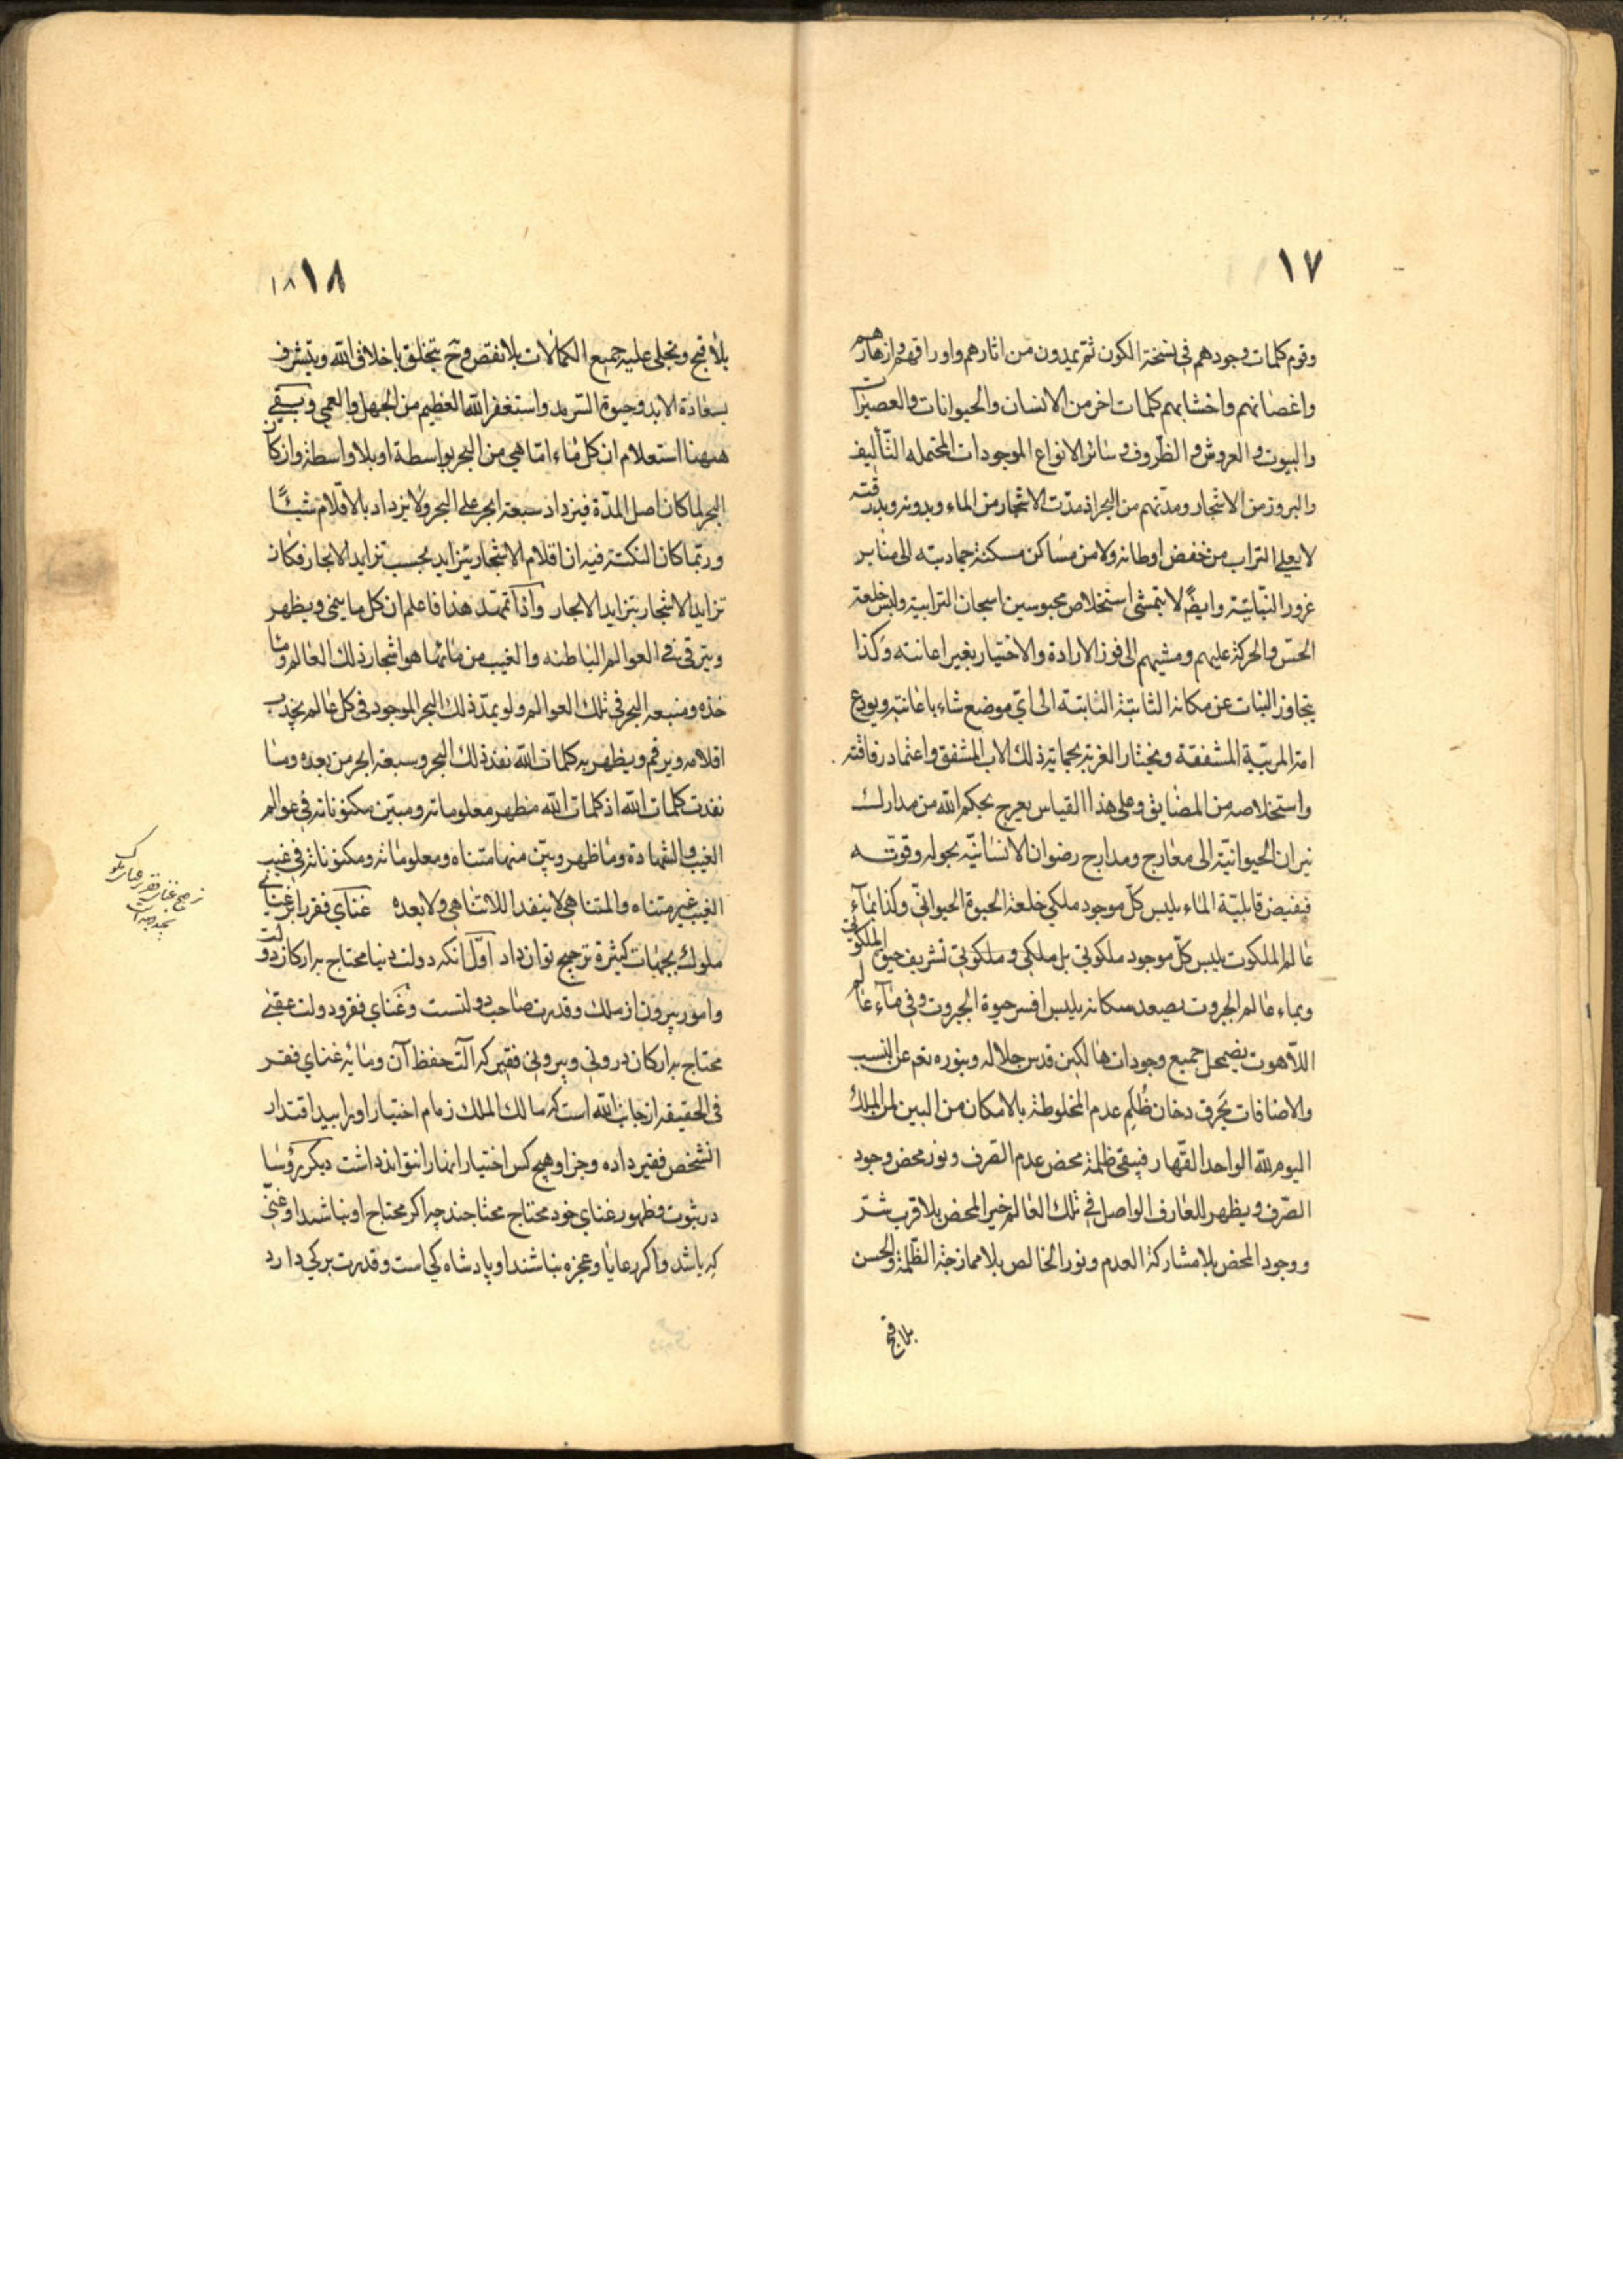 ١٧
ورقوم كلمات وجودهم في نسخة الكون ثم يمدون من اثارهم واوراقهم وازهارهم
واغصانهم واخشابهم كلمات اخر من الانسان والحيوانات والعصيرات
والبيوت والعروش والظروف وسائر الانواع الموجودات المحتمله التأليف
والبروز من الاشجار ومدتهم من البحر اذ مدت الاشجار من الماء وبدونه وبدرقته
لا يعلى التراب من خفض اوطانه ولا من مساكن مسكنة جماديته الى منابر
غرور النباتية وايضا لا يتمشى استخلاص محبوسين اسجان الترابية ولبس خلعة
الحس والحركة عليهم ومشيهم الى فوز الارادة والاختيار بغير اعانته وكذا
يتجاوز النبات عن مكانه الثابتة الى اي موضع شاء باعانته ويودع
امه المربية المشفقة ويختار الغربة بحماية ذلك الاب المشفق واعتماد رفاقته
واستخلاصه من المضايق وعلى هذا القياس يعرج بحكم الله من مدارك
نيران الحيوانية الى معارج ومدارج رضوان الانسانية بحوله وقوته
فيفيض قابلية الماء يلبس كل موجود ملكي خلعة الحيوة الحيواني وكذا بماء
عالم الملكوت يلبس كل موجود ملكوتي بل ملكي وملكوتي تشريف حيوة الملكوتي
وبماء عالم الجبروت يصعد سكانه يلبس افسر حيوة الجبروت وفي ماء عالم
اللاهوت يضمحل جميع وجودات هالكين قدس جلاله وبنوره نعم عن النسب
والاضافات يحرق دخان ظلم عدم المخلوطة بالامكان من البين لمن الملك
اليوم لله الواحد القهار فيبقى ظلمة محض عدم الصرف ونور محض وجود
الصرف ويظهر للعارف الواصل في تلك العالم خير المحض بلا قرب شر
ووجود المحض بلا مشاركة العدم ونور الخالص بلا ممازجة الظلمة والحسن
بلا قبح
١٨ ١٨
بلا قبح وتجلى عليه جميع الكمالات بلا نقص وح يتخلق باخلاق الله ويتشرف
بسعادة الابد وحيوة السرمد واستغفر الله العظيم من الجهل والعمى وبقى
ههنا استعلام ان كل ماء امّا هي من البحر بواسطة او بلا واسطة وان كان
البحر لما كان اصل المدة فيزداد سبعة ابحر على البحر ولا يزداد بالاقلام شيئا
وربما كان النكتة فيه ان اقلام الاشجار يتزايد بحسب تزايد الابحار فكان
تزايد الاشجار بتزايد الابحار واذا تمهد هذا فاعلم ان كل ما ينمى ويظهر
ويترقى في العوالم الباطنه والغيب من مائها هو اشجار ذلك العالم وما
خذه ومنبعه البحر في تلك العوالم ولو يمد ذلك البحر الموجود في كل عالم يجذب
اقلامه ويرقم ويظهر به كلمات الله نفد ذلك البحر وسبعة ابحر من بعده وما
نفدت كلمات الله اذ كلمات الله مظهر معلوماته ومبين مكنوناته في عوالم
الغيب والشهادة وما ظهر وبين منها متناه ومعلوماته ومكنوناته في غيب
الغيب غير متناه والمتناهي لا ينفد اللاتناهي ولا بعده غناي فقر را بر غناي
ملوك بجهات كثيرة ترجيح توان داد اول انكه دولت دنيا محتاج بر اركان دولت
وامور بيرون از ملك وقدرت صاحب دولتست وغناي فقر ودولت عقبى
محتاج بر اركان دروني وبيروني فقير كه آلت حفظ آن ومايه غناي فقر
في الحقيقه از جانب الله است كه مالك الملك زمام اختيار او را بيد اقتدار
انشخص فقير داده وجز او هيچ كس اختيار انها را نتواند داشت ديكر رؤسا
در ثبوت وظهور غناي خود محتاج محتاجند چه اكر محتاج او نباشند او غني
كه باشد واكر رعايا وعجزه نباشند او پادشاه كي است وقدرت بركي دارد
ترجيح غناي فقر بر غناي ملوك
بچند جهات